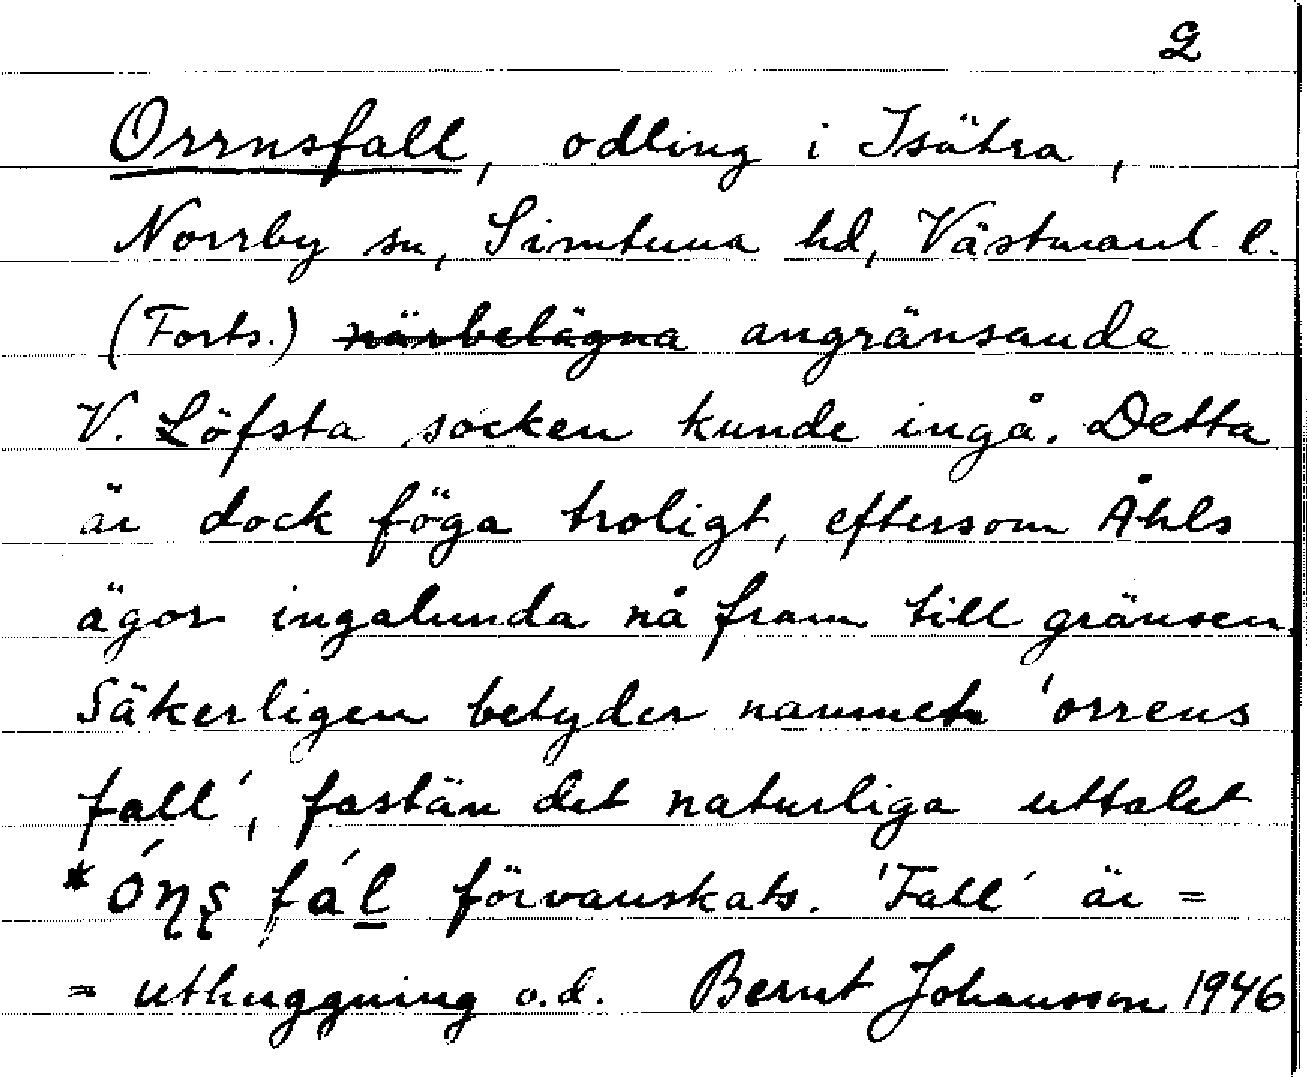 2
Orrnsfall, odling i Isätra,
Norrby sn, Simtuna hd, Västmanl. l.
(Forts.) närbelägna angränsande
V. Löfsta socken kunde ingå. Detta
är dock föga troligt, eftersom Åhls
ägor ingalunda nå fram till gränsen.
Säkerligen betyder namnet 'orrens
fall', fastän det naturliga uttalet
*óɳʂ fál förvanskats. 'Fall' är =
= uthuggning o.d. Bernt Johansson 1946